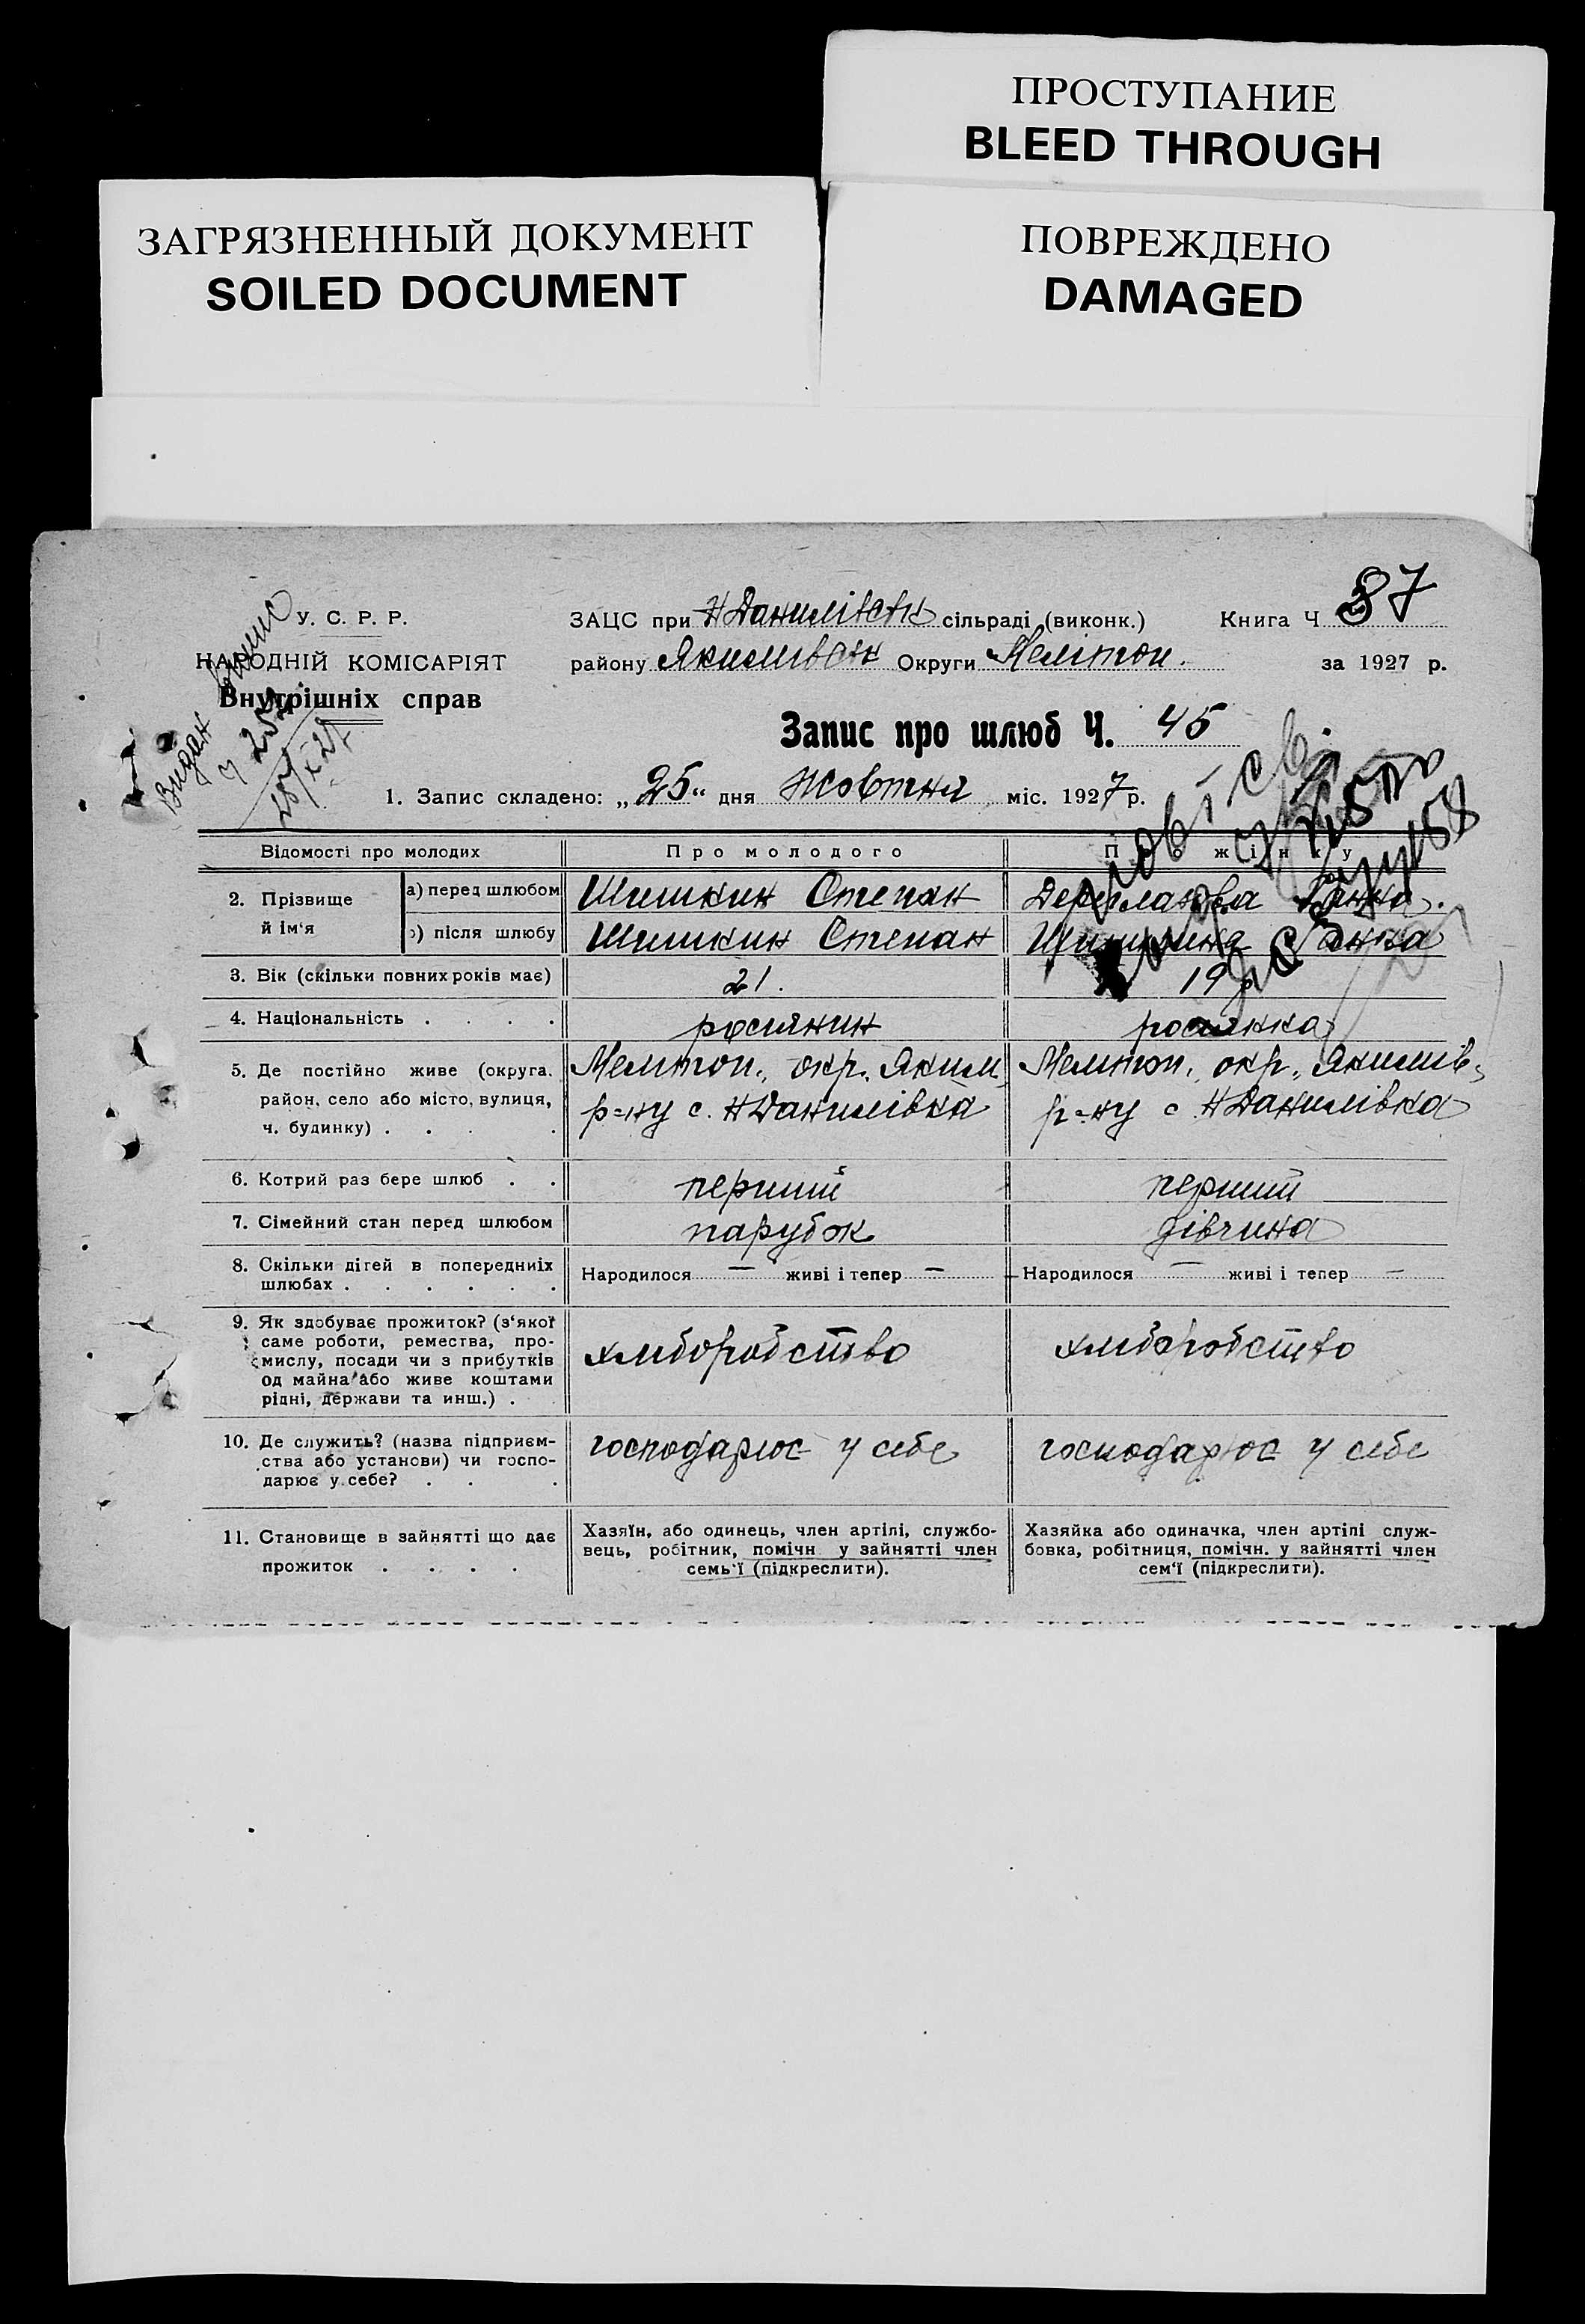 ПРОСТУПАНИЕ
BLEED THROUGH
ЗАГРЯЗНЕННЫЙ ДОКУМЕНТ
SOILED DOCUMENT
ПОВРЕЖДЕНО
DAMAGED
У. С. Р. Р.
НАРОДНІЙ КОМІСАРІЯТ
Внутрішніх справ
Видан
ЗАЦС при Н Данилівськ сільраді (виконк.)
Книга Ч 37
району Якимівськ Округи Мелітоп.
за 1927 р.
Запис про шлюб Ч. 45
1. Запис складено: „25“ дня Жовтня міс. 1927 р.
Відомості про молодих Про молодого Про жінку
2. Прізвище й ім'я
а) перед шлюбом Шишкин Степан Ганна.
б) після шлюбу Шишкин Степан Шишкина Ганна
3. Вік (скільки повних років має) 21. 19
4. Національність . . . . росіянин росіянка
5. Де постійно живе (округа, Мелітоп., окр. Яким. Мелітоп., окр., Якимів-
район, село або місто, вулиця, р-ну с. Н Данилівка р-ну с Н Данилівка
ч. будинку) . . .
6. Котрий раз бере шлюб . . перший перший
7. Сімейний стан перед шлюбом парубок дівчина
8. Скільки дітей в попередніх шлюбах . . . . . .
Народилося — живі і тепер — Народилося — живі і тепер —
9. Як здобуває прожиток? (з'якої
саме роботи, ремества, про-
мислу, посади чи з прибутків
од майна або живе коштами
рідні, держави та инш.) .
хліборобство хліборобство
10. Де служить? (назва підприєм-
ства або установи) чи госпо-
дарює у себе? . . .
господарює у себе господарює у себе
11. Становище в зайнятті що дає
прожиток . . . .
Хазяїн, або одинець, член артілі, службо-
вець, робітник, помічн. у зайнятті член
семь'ї (підкреслити).
Хазяйка або одиначка, член артілі служ-
бовка, робітниця, помічн. у зайнятті член
сем'ї (підкреслити).